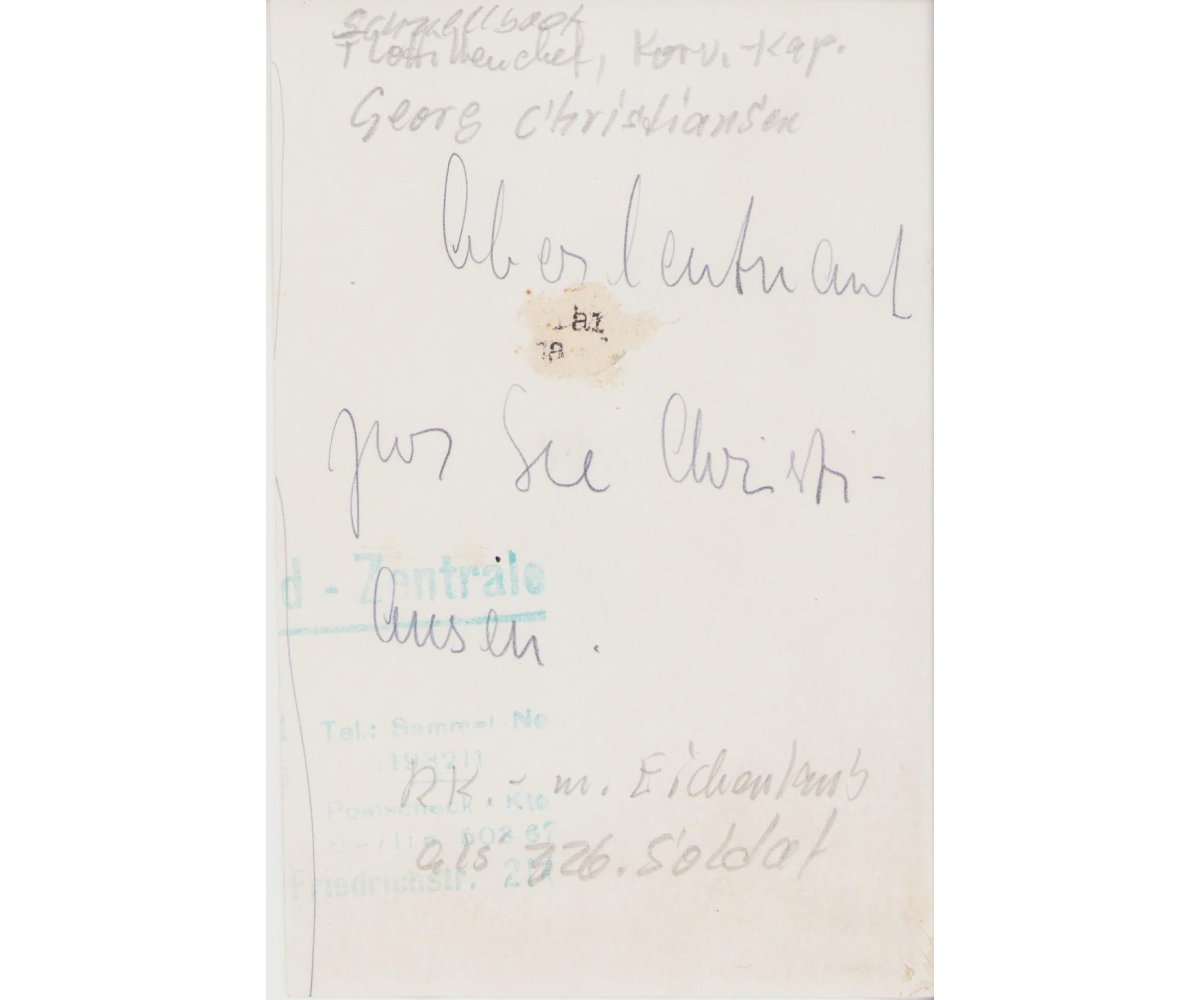 Schnellboot
Flottillenchef, Korv.-Kap.
Georg Christiansen
Oberleutnant
zur See Christi-
ansen.
d - Zentrale
Tel.: Sammel-No
Postscheck-Kto
Berlin
Friedrichstr.
RK. - m. Eichenlaub
als 326. Soldat